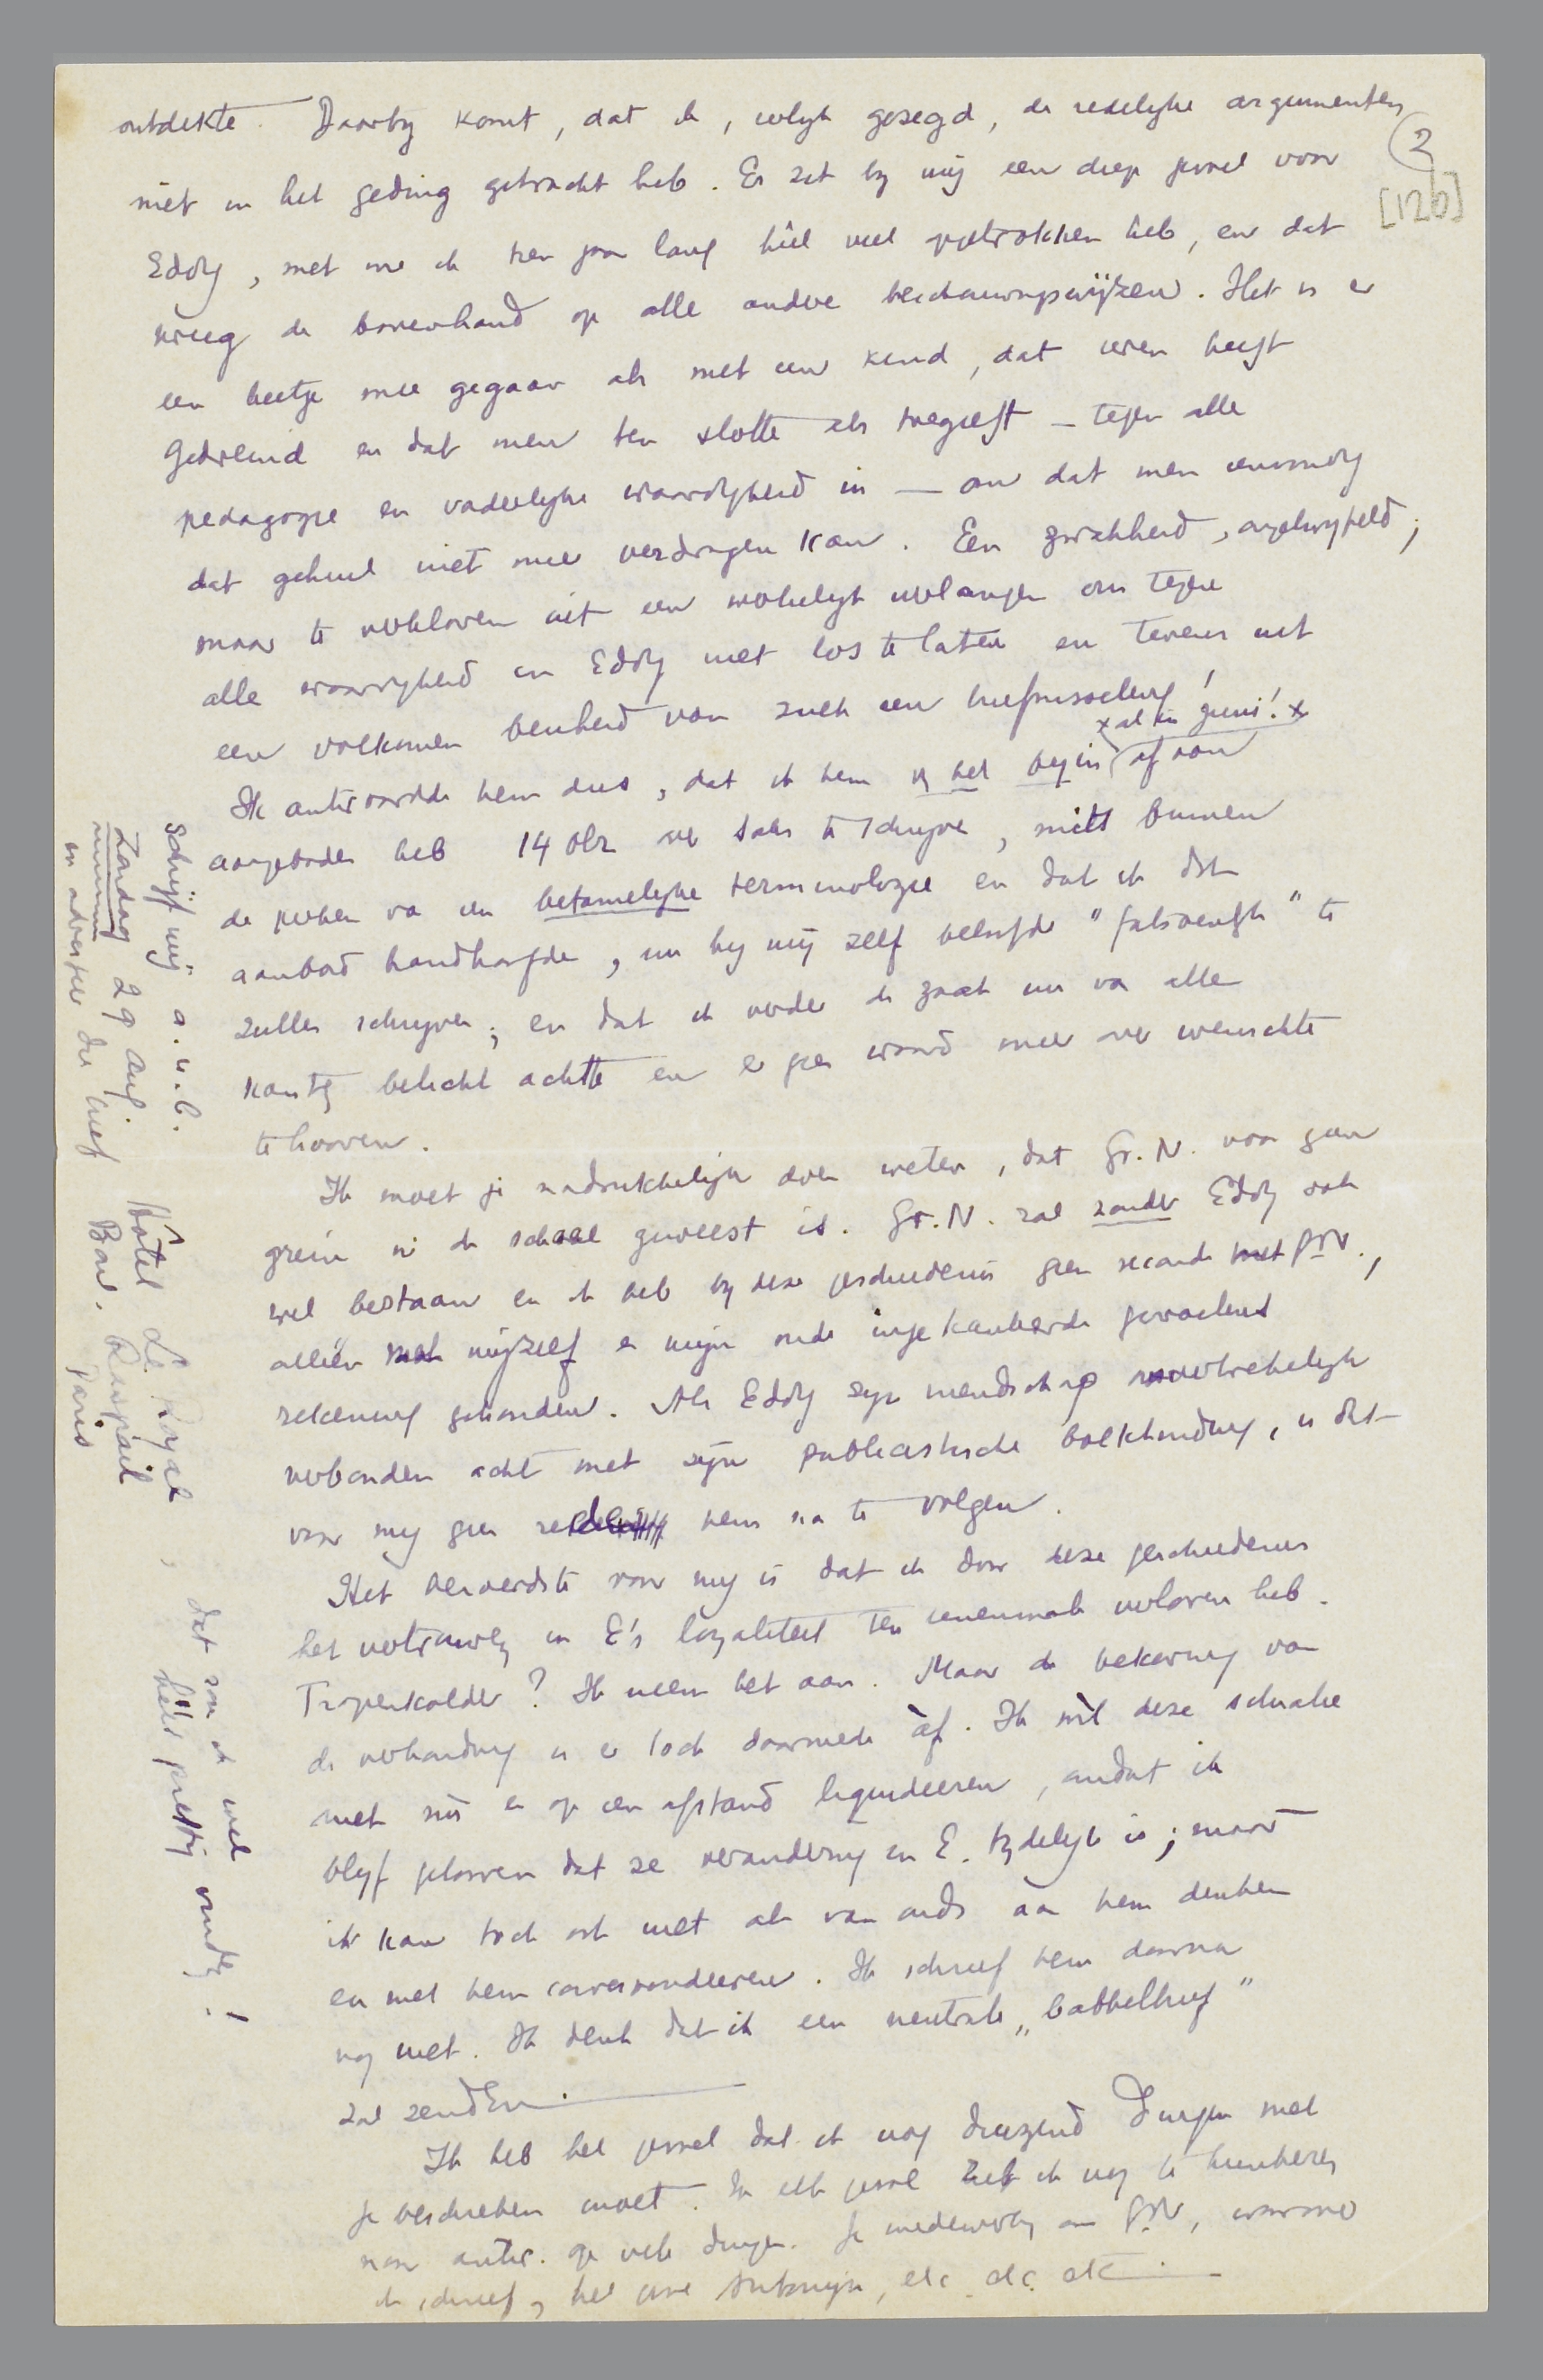 ontdekte. Daarbij komt, dat ik, eerlijk gezegd, de redelijke argumenten
niet in het geding gebracht heb. Er zit bij mij een diep gevoel voor
Eddy, met wie ik tien jaar lang héél veel opgetrokken heb, en dat
kreeg de bovenhand op alle andere beschouwingswijzen. Het is er
een beetje mee gegaan als met een kind, dat uren heeft
gedreind en dat men ten slotte iets toegeeft — tegen alle
pedagogie en vaderlijke waardigheid in — omdat men eenvoudig
dat gehuil niet meer verdragen kan. Een zwakheid, ongetwijfeld;
maar te verklaren uit een werkelijk verlangen om tegen
alle waarschijnlijkheid in Eddy niet los te laten en tevens uit
een volkomen beuheid van zulk een briefwisseling!
x al in Juni! x
Ik antwoordde hem dus, dat ik hem in het begin af aan
aangeboden heb 14 blz over Soler te schrijven, mits binnen
de perken van een betamelijke terminologie en dat ik dit
aanbod handhaafde, nu hij mij zelf beloofde "fatsoenlijk" te
zullen schrijven; en dat ik verder de zaak nu van alle
kanten belicht achtte en er geen woord meer over wenschte
te hooren.
Ik moet je nadrukkelijk doen weten, dat Gr. N. voor geen
grein in de schaal geweest is. Gr. N. zal zonder Eddy ook
wel bestaan en ik heb bij deze geschiedenis geen seconde met GrN.,
alléén met mijzelf en mijn oude ingekankerde gevoelens
rekening gehouden. Als Eddy zijn vriendschap onverbrekelijk
verbonden acht met zijn publicistische boekhouding, is dit
voor mij geen reden hem na te volgen.
Het beroerdste voor mij is dat ik door deze geschiedenis
het vertrouwen in E's loyaliteit ten eenenmale verloren heb.
Tropenkolder? Ik neem het aan. Maar de bekoring van
de verhouding is er toch daarmede àf. Ik wil deze schuld
niet nu en op een afstand liquideeren, omdat ik
blijf gelooven dat de verandering in E. tijdelijk is; maar
ik kan toch ook niet als van ouds aan hem denken
en met hem correspondeeren. Ik schreef hem daarna
nog niet. Ik denk dat ik een neutrale „babbelbrief”
zal zenden.
Ik heb het gevoel dat ik nog duizend dingen met
je beschrijven moet. In elk geval heb ik nog te herinneren
naar antw. op vele dingen. Je medewerking aan GrN, waarover
ik schreef, het geval Antonijn, etc. etc. etc.
2
[12b]
Schrijf mij a.u.b.
Zondag 29 Aug.
Hôtel Le Royal,
Boul. Raspail
Paris
dat zou ik wel
héél prettig vinden!